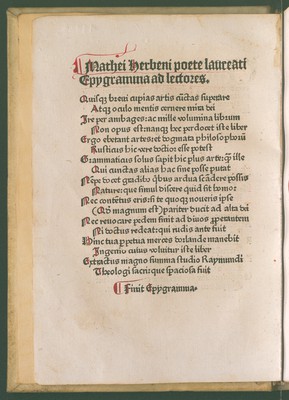 ¶ Mathei Herbeni poete laureati
Epygramma ad lectores.
Quisq̃ breui cupias artis cũctas superare
Atq̃ oculo mentis cernere mira dei
Ire per ambages: ac mille volumina librum
Non opus est: nanq̃ hec per docet iste liber
Ergo ebetant artes: et dogmata philosophorũ
Rusticus hic vere doctior esse potest
Grammaticos solus sapit hic plus arte: q̃ ille
Qui cunctas alias hac sine posse putat
Nẽpe docet gradibꝰ q̃bus ardua scãdere possis
Nature: que simul differe quid sit homo:
Nec contẽtus eris: si te quoq̃ noueris ipse
(Qd̃ magnum est) pariter ducit ad alta dei
Nec reuocare pedem sinit ad diuos ꝓperantem
Ni doctus redeat: qui rudis ante fuit
Hinc tua ꝑpetua merces borlande manebit
Ingenio cuius voluitur iste liber
Extractus magno summa studio Raymundi
Theologi sacri: que spaciosa fuit
¶ Finit Epygramma.